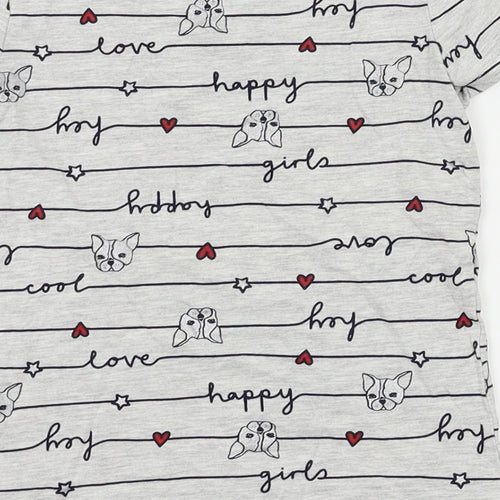 hey
love
hey
happy
hey hey
girls
happy
love
cool cool
hey
love
happy
hey hey
girls